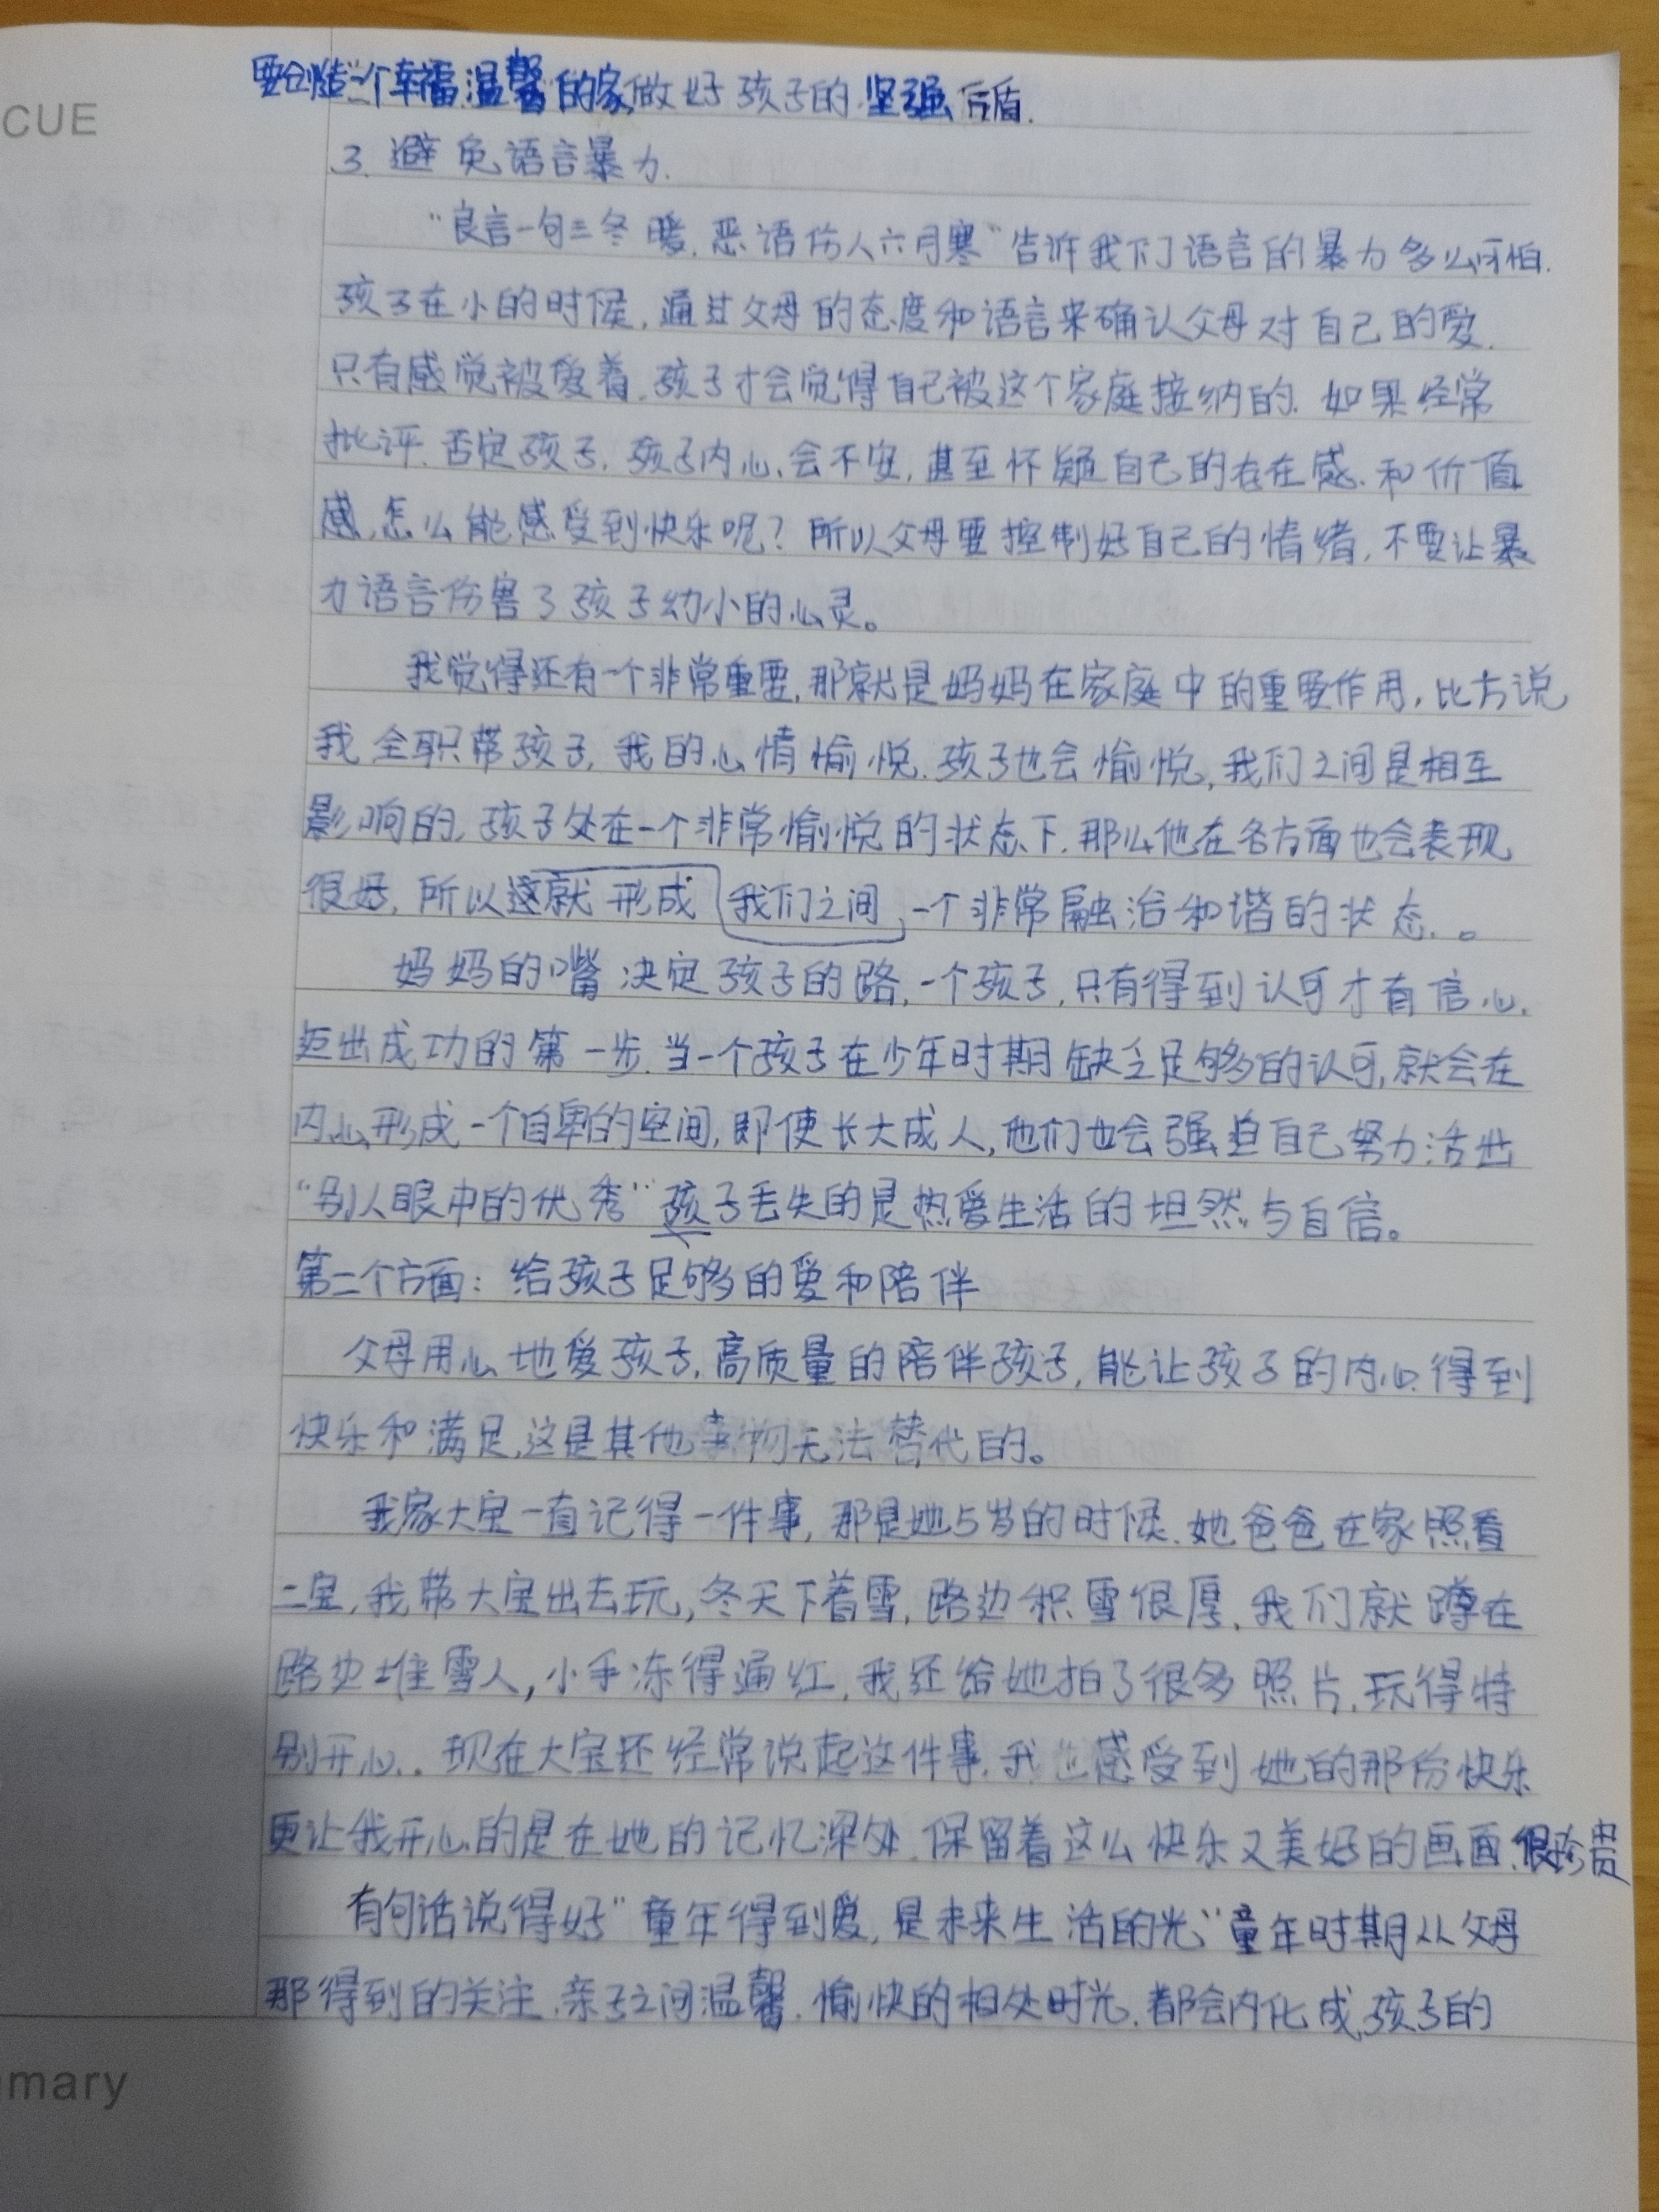 要创造一个幸福温馨的家,做好孩子的坚强后盾.
CUE
3. 避免语言暴力.
“良言一句三冬暖,恶语伤人六月寒”告诉我们语言的暴力多么可怕.
孩子在小的时候,通过父母的态度和语言来确认父母对自己的爱.
只有感觉被爱着.孩子才会觉得自己被这个家庭接纳的.如果经常
批评.否定孩子.孩子内心会不安,甚至怀疑自己的存在感.和价值
感,怎么能感受到快乐呢?所以父母要控制好自己的情绪,不要让暴
力语言伤害了孩子幼小的心灵。
我觉得还有一个非常重要,那就是妈妈在家庭中的重要作用,比方说
我全职带孩子,我的心情愉悦.孩子也会愉悦,我们之间是相互
影响的,孩子处在一个非常愉悦的状态下.那么他在各方面也会表现
很好,所以这就形成我们之间一个非常融洽和谐的状态.。
妈妈的嘴决定孩子的路,一个孩子,只有得到认可才有信心,
迈出成功的第一步.当一个孩子在少年时期缺乏足够的认可,就会在
内心形成一个自卑的空间,即使长大成人,他们也会强迫自己努力活出
“别人眼中的优秀”孩子丢失的是热爱生活的坦然与自信。
第二个方面:给孩子足够的爱和陪伴
父母用心地爱孩子,高质量的陪伴孩子,能让孩子的内心得到
快乐和满足,这是其他事物无法替代的。
我家大宝一直记得一件事,那是她5岁的时候.她爸爸在家照看
二宝,我带大宝出去玩,冬天下着雪,路边积雪很厚,我们就蹲在
路边堆雪人,小手冻得通红,我还给她拍了很多照片,玩得特
别开心..现在大宝还经常说起这件事.我也感受到她的那份快乐
更让我开心的是在她的记忆深处.保留着这么快乐又美好的画面.很珍贵
有句话说得好“童年得到爱,是未来生活的光”童年时期从父母
那得到的关注.亲子之间温馨.愉快的相处时光.都会内化成孩子的
mary